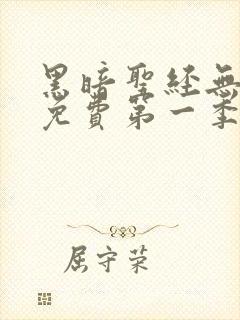 黑暗聖經無
免費第一季
屈守荣